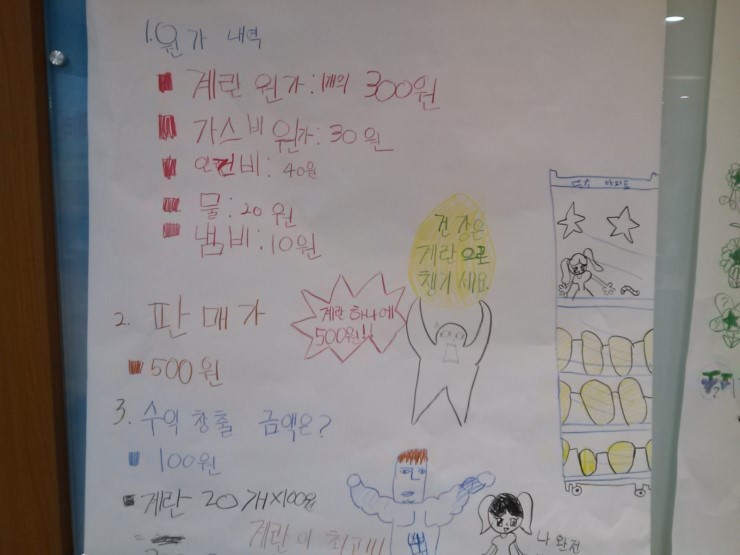 1. 원가 내역
계란 원가: 1개의 300원
가스비 원가: 30원
인건비: 40원
물: 20원
냄비: 10원
건강은
계란으로
챙기세요
계란 하나에
500원!!
2. 판매가
500원
3. 수익 창출 금액은?
100원
계란 20개×100원
=
계란이 최고!!!
나 완전